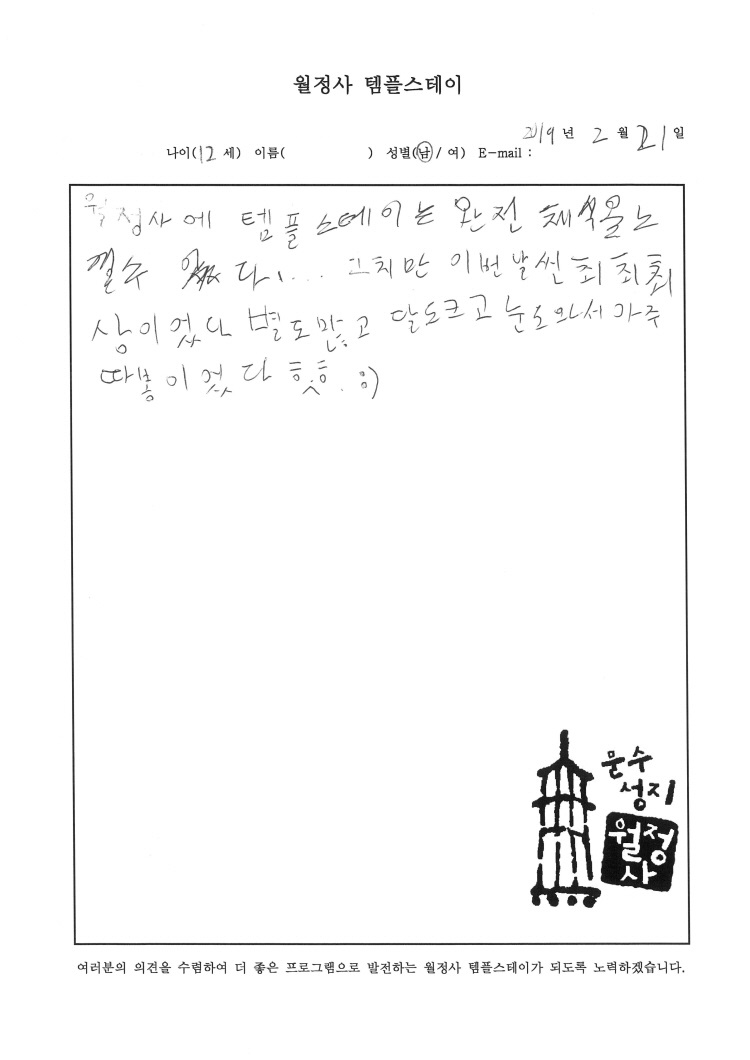 월정사 템플스테이
2019 년 2 월 21 일
나이(12 세) 이름( ) 성별(남 / 여) E-mail :
월정사에 템플스테이는 완전 채식을 느
낄수 있다.... 그치만 이번 발씬 최 최 최
상이었다 별도많고 달도크고 눈도와서 아주
따봉이었다 흣흣. :)
문수
성지
월정
사
여러분의 의견을 수렴하여 더 좋은 프로그램으로 발전하는 월정사 템플스테이가 되도록 노력하겠습니다.